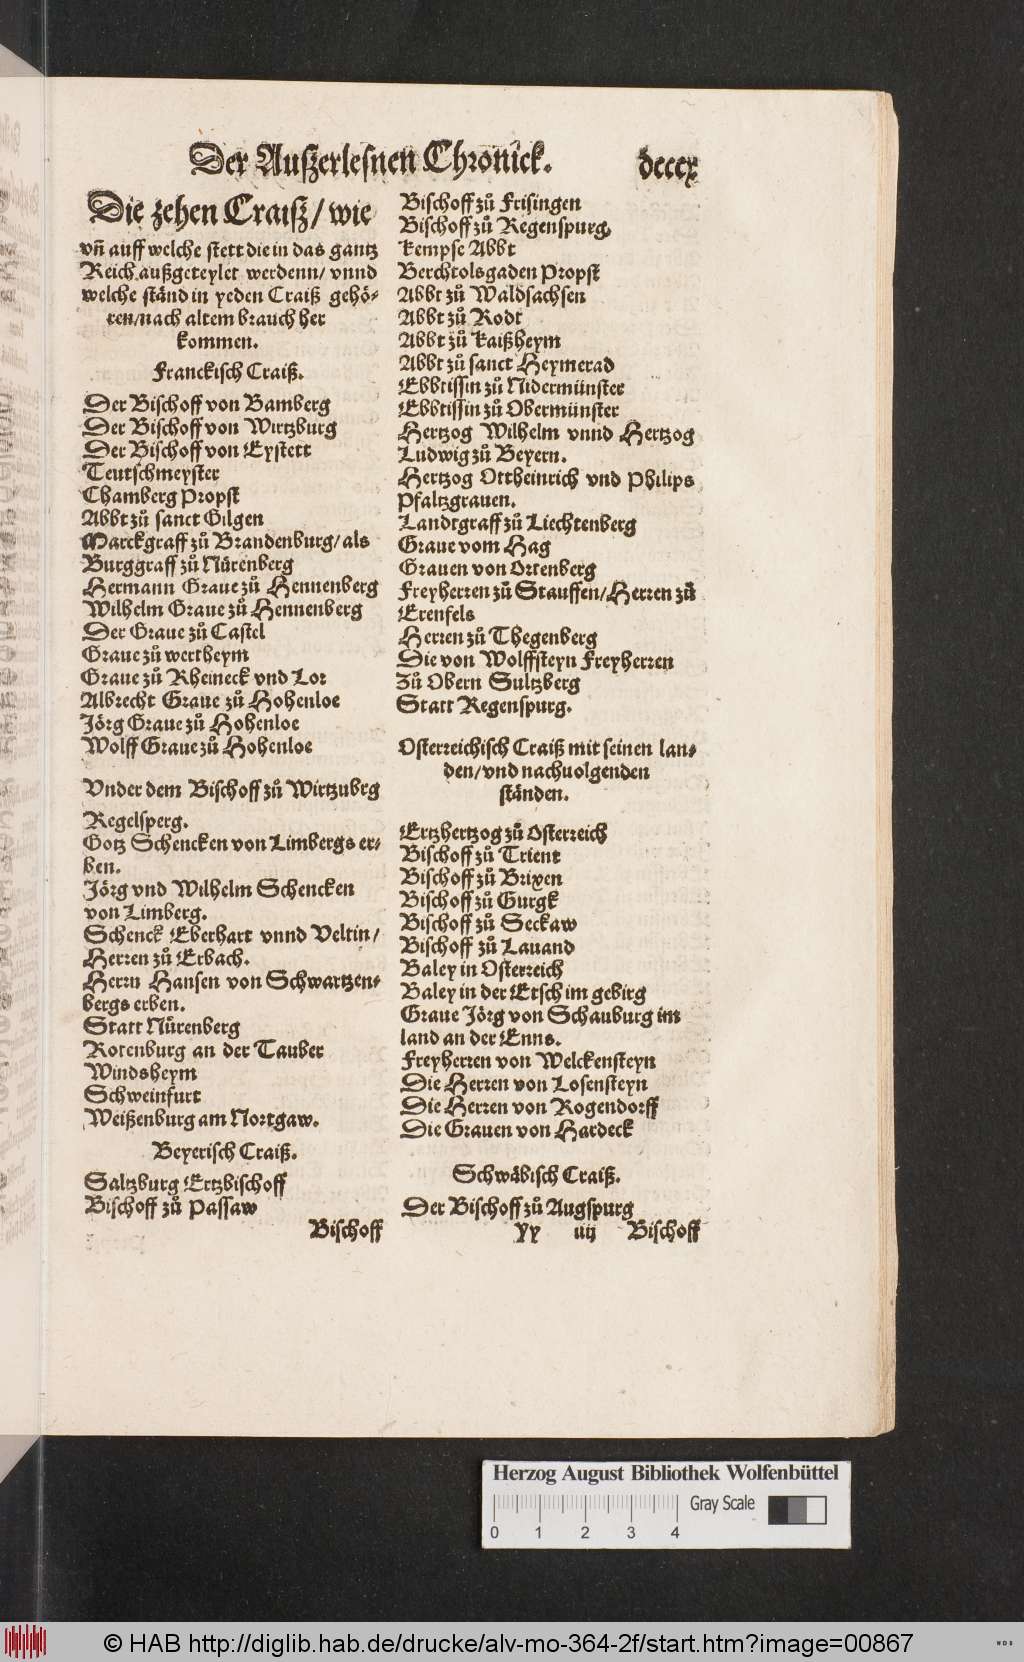 Der Außerlesnen Chronick.
dcccx
Die zehen Craiß/ wie
vñ auff welche stett die in das gantz
Reich außgeteylet werdenn/ vnnd
welche ständ in yeden Craiß gehö-
ren/nach altem brauch her
kommen.
Franckisch Craiß.
Der Bischoff von Bamberg
Der Bischoff von Wirtzburg
Der Bischoff von Eystett
Teutschmeyster
Chamberg Propst
Abbt zů sanct Gilgen
Marckgraff zů Brandenburg/ als
Burggraff zů Nürenberg
Hermann Graue zů Hennenberg
Wilhelm Graue zů Hennenberg
Der Graue zů Castel
Graue zů wertheym
Graue zů Rheineck vnd Lor
Albrecht Graue zů Hohenloe
Jörg Graue zů Hohenloe
Wolff Graue zů Hohenloe
Vnder dem Bischoff zů Wirtzubrg
Regelsperg.
Gotz Schencken von Limbergs er-
ben.
Jörg vnd Wilhelm Schencken
von Limberg.
Schenck Eberhart vnnd Veltin/
Herren zů Erbach.
Herrn Hansen von Schwartzen-
bergs erben.
Statt Nürenberg
Rotenburg an der Tauber
Windsheym
Schweinfurt
Weißenburg am Nortgaw.
Beyerisch Craiß.
Saltzburg Ertzbischoff
Bischoff zů Passaw
Bischoff
Bischoff zů Frisingen
Bischoff zů Regenspurg,
Kempse Abbt
Berchtolsgaden Propst
Abbt zů Waldsachsen
Abbt zů Rodt
Abbt zů Kaißheym
Abbt zů sanct Heymerad
Ebbtissin zů Nidermünster
Ebbtissin zů Obermünster
Hertzog Wilhelm vnnd Hertzog
Ludwig zů Beyern.
Hertzog Ottheinrich vnd Philips
Pfaltzgrauen.
Landtgraff zů Liechtenberg
Graue vom Hag
Grauen von Ortenberg
Freyherren zů Stauffen/Herren zů
Erenfels
Herren zů Thegenberg
Die von Wolffsteyn Freyherren
Zů Obern Sultzberg
Statt Regenspurg.
Osterreichisch Craiß mit seinen lan-
den/vnd nachuolgenden
ständen.
Ertzhertzog zů Osterreich
Bischoff zů Trient
Bischoff zů Brixen
Bischoff zů Gurgk
Bischoff zů Seckaw
Bischoff zů Lauand
Baley in Osterreich
Baley in der Etsch im gebirg
Graue Jörg von Schauburg im
land an der Enns.
Freyherren von Welckensteyn
Die Herren von Losensteyn
Die Herren von Rogendorff
Die Grauen von Hardeck
Schwäbisch Craiß.
Der Bischoff zů Augspurg
yy iiij Bischoff
Herzog August Bibliothek Wolfenbüttel
Gray Scale
0 1 2 3 4
© HAB http://diglib.hab.de/drucke/alv-mo-364-2f/start.htm?image=00867